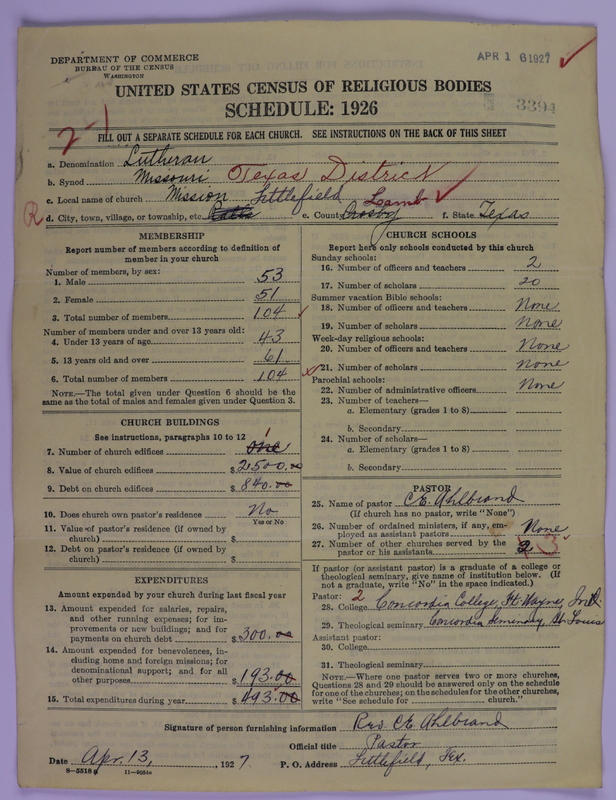 DEPARTMENT OF COMMERCE
BUREAU OF THE CENSUS
WASHINGTON
APR 16 1927
UNITED STATES CENSUS OF RELIGIOUS BODIES
SCHEDULE: 1926
3394
2-1
FILL OUT A SEPARATE SCHEDULE FOR EACH CHURCH. SEE INSTRUCTIONS ON THE BACK OF THIS SHEET
a. Denomination Lutheran
b. Synod Missouri Texas District
c. Local name of church Mission Littlefield Lamb
R d. City, town, village, or township, etc. e. County Crosby f. State Texas
MEMBERSHIP
Report number of members according to definition of member in your church
Number of members, by sex:
1. Male 53
2. Female 51
3. Total number of members 104
Number of members under and over 13 years old:
4. Under 13 years of age 43
5. 13 years old and over 61
6. Total number of members 104
NOTE.—The total given under Question 6 should be the same as the total of males and females given under Question 3.
CHURCH BUILDINGS
See instructions, paragraphs 10 to 12
7. Number of church edifices one 1
8. Value of church edifices $2,500.00
9. Debt on church edifices $840.00
10. Does church own pastor's residence? No
Yes or No
11. Value of pastor's residence (if owned by church) $
12. Debt on pastor's residence (if owned by church) $
EXPENDITURES
Amount expended by your church during last fiscal year
13. Amount expended for salaries, repairs, and other running expenses; for improvements or new buildings; and for payments on church debt $300.00
14. Amount expended for benevolences, including home and foreign missions; for denominational support; and for all other purposes $193.00
15. Total expenditures during year $493.00
CHURCH SCHOOLS
Report here only schools conducted by this church
Sunday schools:
16. Number of officers and teachers 2
17. Number of scholars 20
Summer vacation Bible schools:
18. Number of officers and teachers None
19. Number of scholars None
Week-day religious schools:
20. Number of officers and teachers None
21. Number of scholars None
Parochial schools:
22. Number of administrative officers None
23. Number of teachers—
a. Elementary (grades 1 to 8)
b. Secondary
24. Number of scholars—
a. Elementary (grades 1 to 8)
b. Secondary
PASTOR
25. Name of pastor C.E. Ahlbrand
(If church has no pastor, write "None")
26. Number of ordained ministers, if any, employed as assistant pastors None
27. Number of other churches served by the pastor or his assistants 2 3
If pastor (or assistant pastor) is a graduate of a college or theological seminary, give name of institution below. (If not a graduate, write "No" in the space indicated.)
Pastor: 2
28. College Concordia College, Ft. Wayne, Ind.
29. Theological seminary Concordia Seminary, St. Louis
Assistant pastor:
30. College
31. Theological seminary
NOTE.—Where one pastor serves two or more churches, Questions 28 and 29 should be answered only on the schedule for one of the churches; on the schedules for the other churches, write "See schedule for church."
Signature of person furnishing information Rev. C.E. Ahlbrand
Official title Pastor
Date Apr. 13, 1927 P. O. Address Littlefield, Tex.